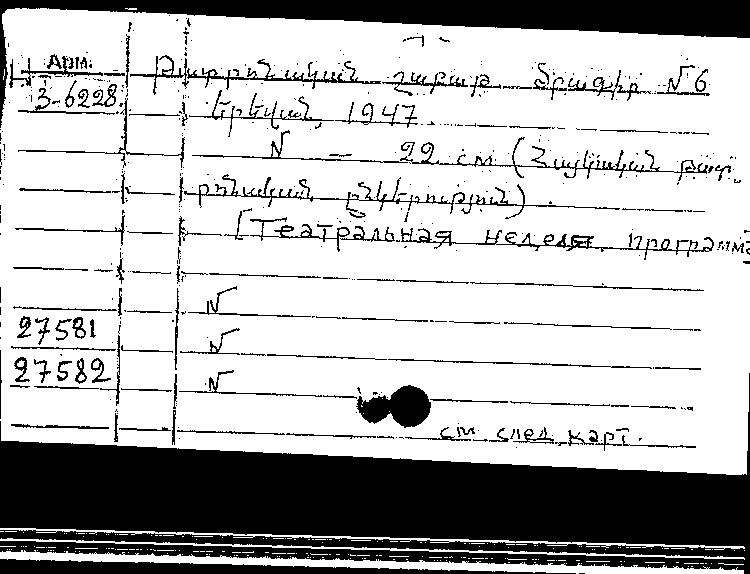 Арм.
Թատրոնական շաբաթ. ծրագիր № 6
3-6228.
Երեվան, 1947.
№ — 22 см (Հայկական թատ-
րոնական ընկերություն).
[Театральная неделя. программа
№
27581
№
27582
№
см. след. карт.